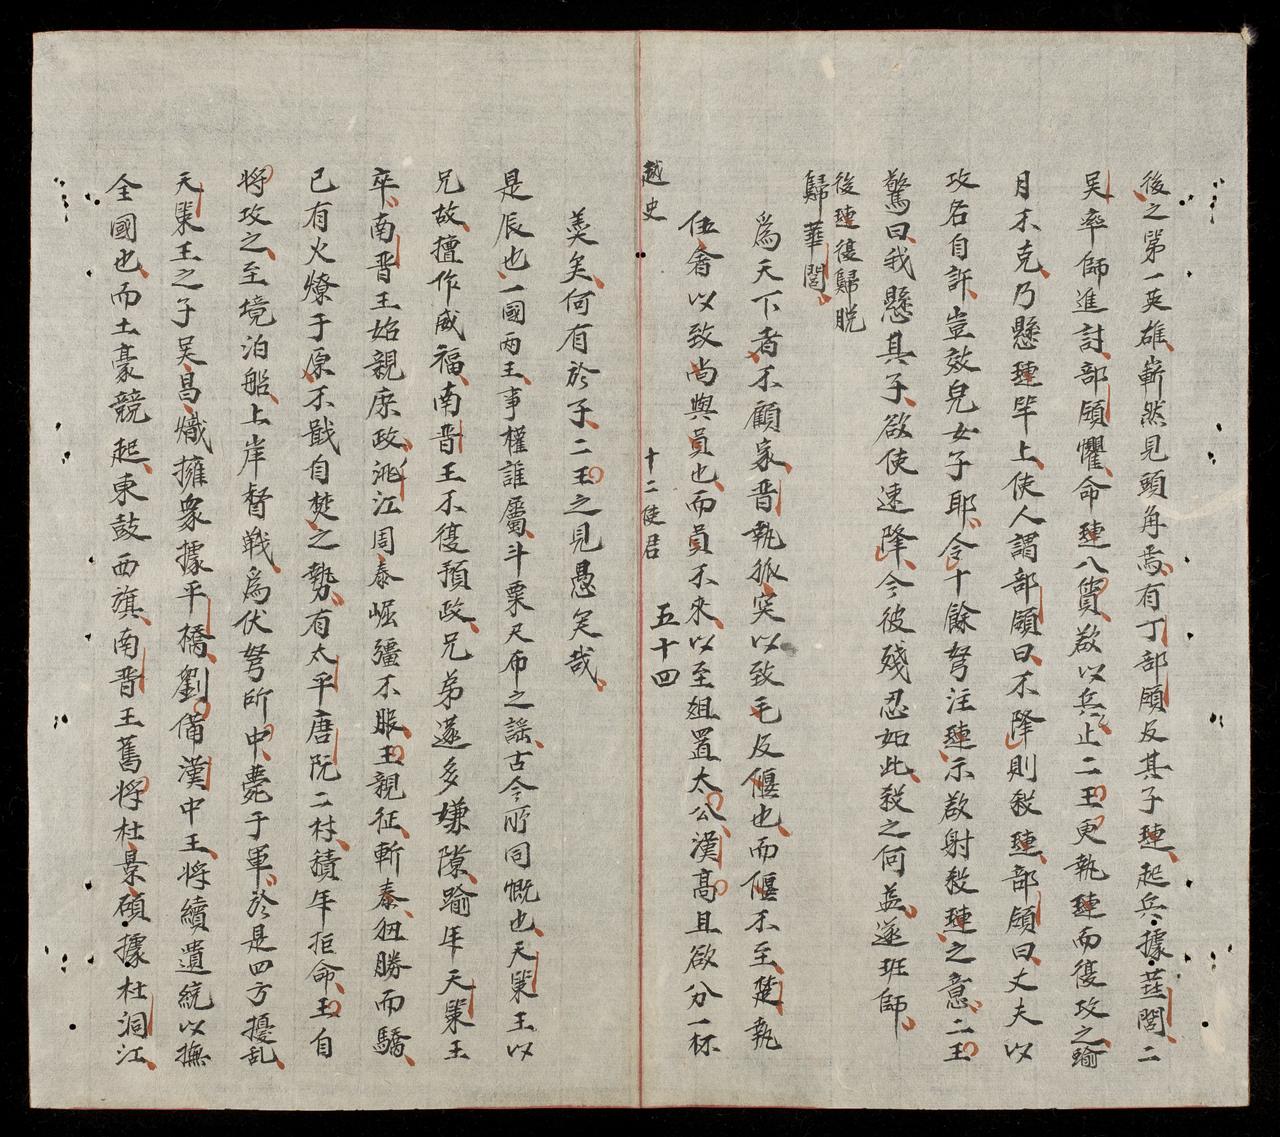 後之第一英雄嶄然見頭角焉有丁部領及其子璉起兵據華閭二
吳率師進討部領懼命璉入質欲以兵止二王更執璉而復攻之踰
月不克乃懸璉竿上使人謂部領曰不降則殺璉部領曰丈夫以
攻名自許豈效兒女子耶令十餘弩注璉示欲射殺璉之意二王
驚曰我懸其子欲使速降今彼殘忍如此殺之何益遂班師
後璉復歸脱
歸華閭
為天下者不顧家晋執狐突以致毛及偃也而偃不至楚執
伍奢以致尚與員也而員不來以至俎置太公漢高且欲分一杯
越史
十二使君
五十四
羹矣何有於子二王之見愚矣哉
是辰也一國两王事權誰屬斗粟尺布之謡古今所同慨也天策王以
兄故擅作威福南晋王不復預政兄弟遂多嫌隙踰年天策王
卒南晋王始親庶政洮江周泰崛彊不服王親征斬泰狃勝而驕
已有火燎于原不戢自焚之勢有太平唐阮二村積年拒命王自
将攻之至境泊船上岸督戰爲伏弩所中薨于軍於是四方擾乱
天策王之子吴昌熾擁衆據平橋劉備漢中王将續遺統以撫
全國也而土豪競起東鼓西旗南晋王舊将杜景碩據杜洞江